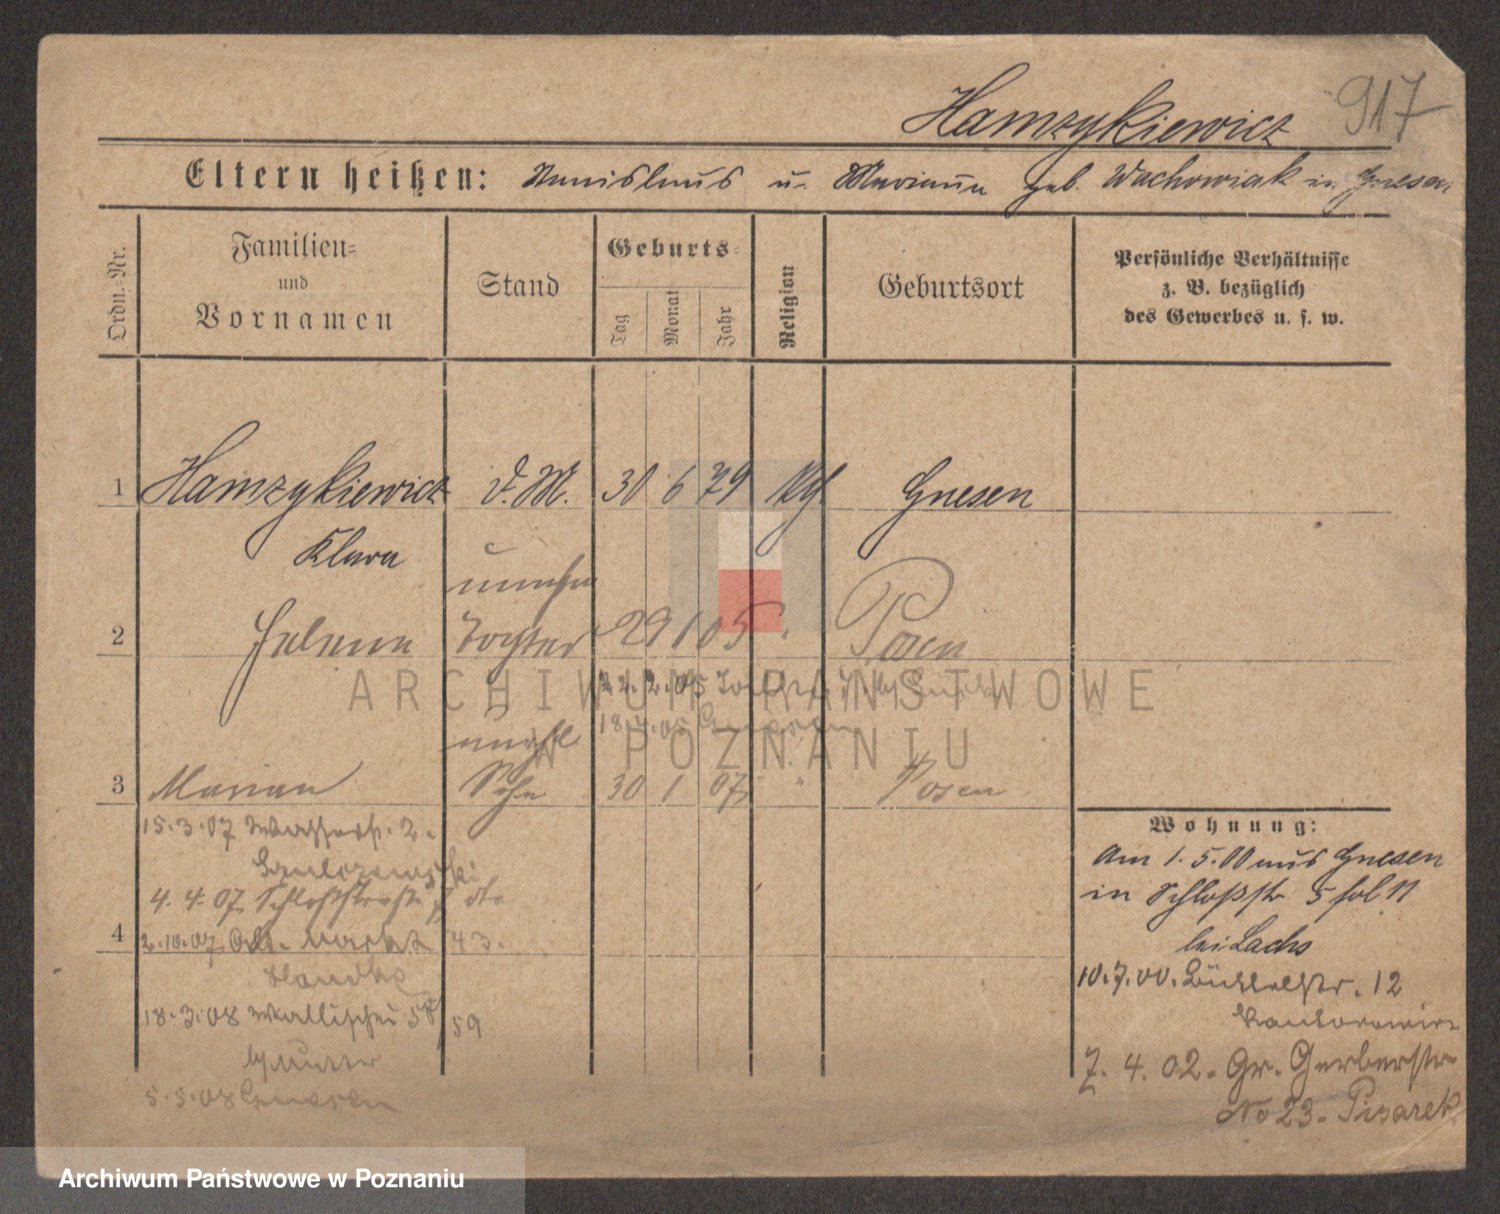 Hamzykiewicz 917
Eltern heißen: Stanislaus u. Marianna geb. Wachowiak in Gnesen
Ordn.-Nr.
Familien-
und
Vornamen
Stand
Geburts-
Tag
Monat
Jahr
Religion
Geburtsort
Persönliche Verhältnisse
z. B. bezüglich
des Gewerbes u. s. w.
1 Hamzykiewicz D.M. 30 6 79 Gnesen
Klara
unehe
2 Helena Tochter 29 1 05 " Posen
22.2.05
18.7.05 Gnesen
unehl
3 Marian Sohn 30 1 07 " Posen
15.3.07 Wasserstr. 2.
4.4.07 Schloßstraße
4 2.10.07 Alt. Markt 43.
18.3.08 Wallischei 58/59
b/ Mutter
5.5.08 Gnesen
Wohnung:
Am 1.5.00 aus Gnesen
in Schloßstr 5
bei Lachs
10.7.00. Büttelstr. 12
7.4.02. Gr. Gerberstr
No 23. Pisarek
ARCHIWUM PAŃSTWOWE
W POZNANIU
Archiwum Państwowe w Poznaniu